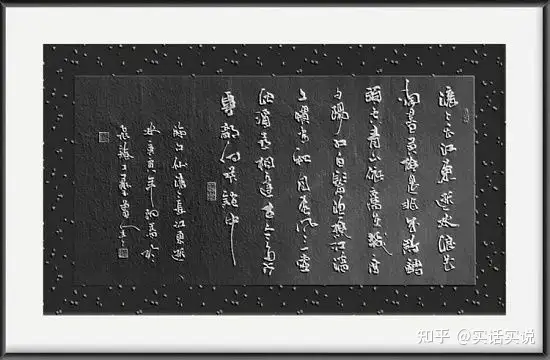 滚滚长江東逝水浪花
淘尽英雄是非成敗轉
頭空青山依舊在幾度
夕陽红白髮渔樵江渚
上慣看秋月春风一壶
浊酒喜相逢古今多少
事都付笑谈中
臨江仙滚滚長江東逝
水
知乎 @实话实说